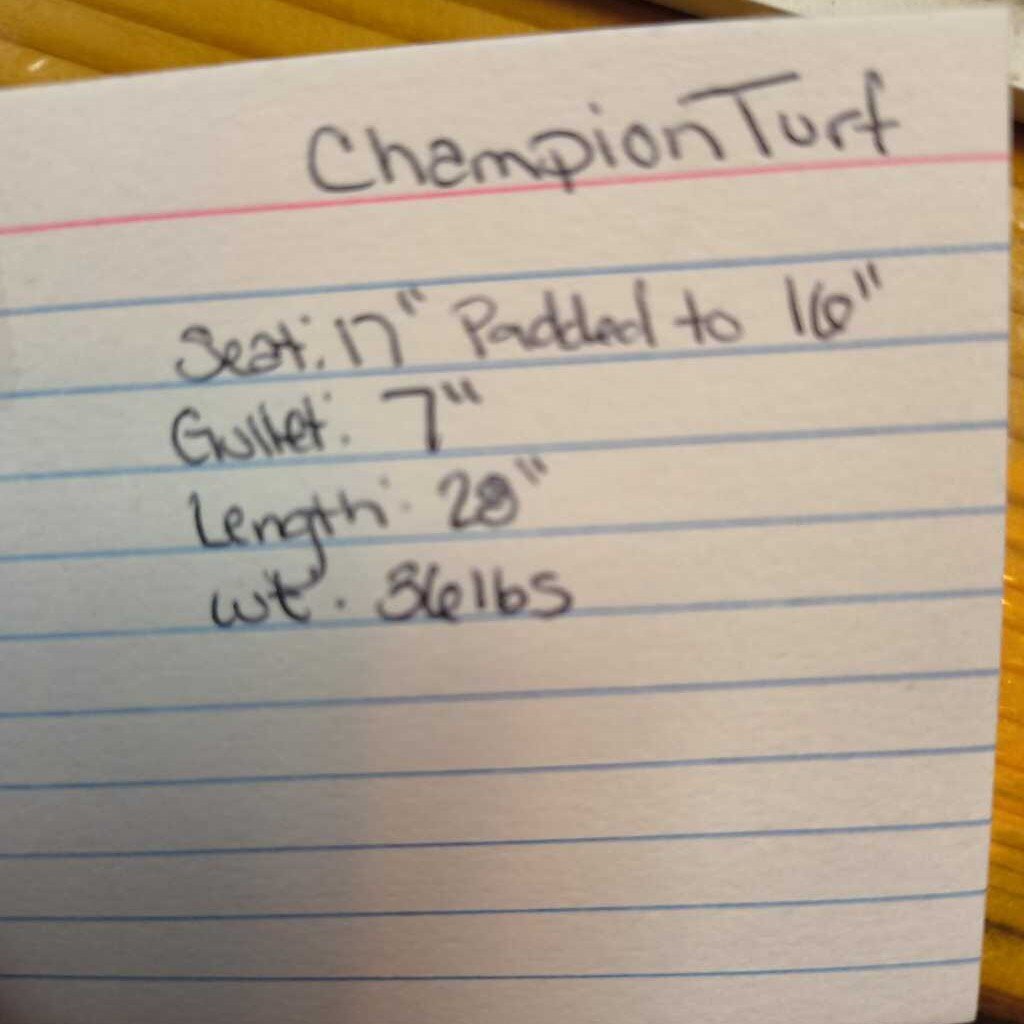 Champion Turf
Seat: 17" Padded to 16"
Gullet: 7"
Length: 28"
wt. 36lbs